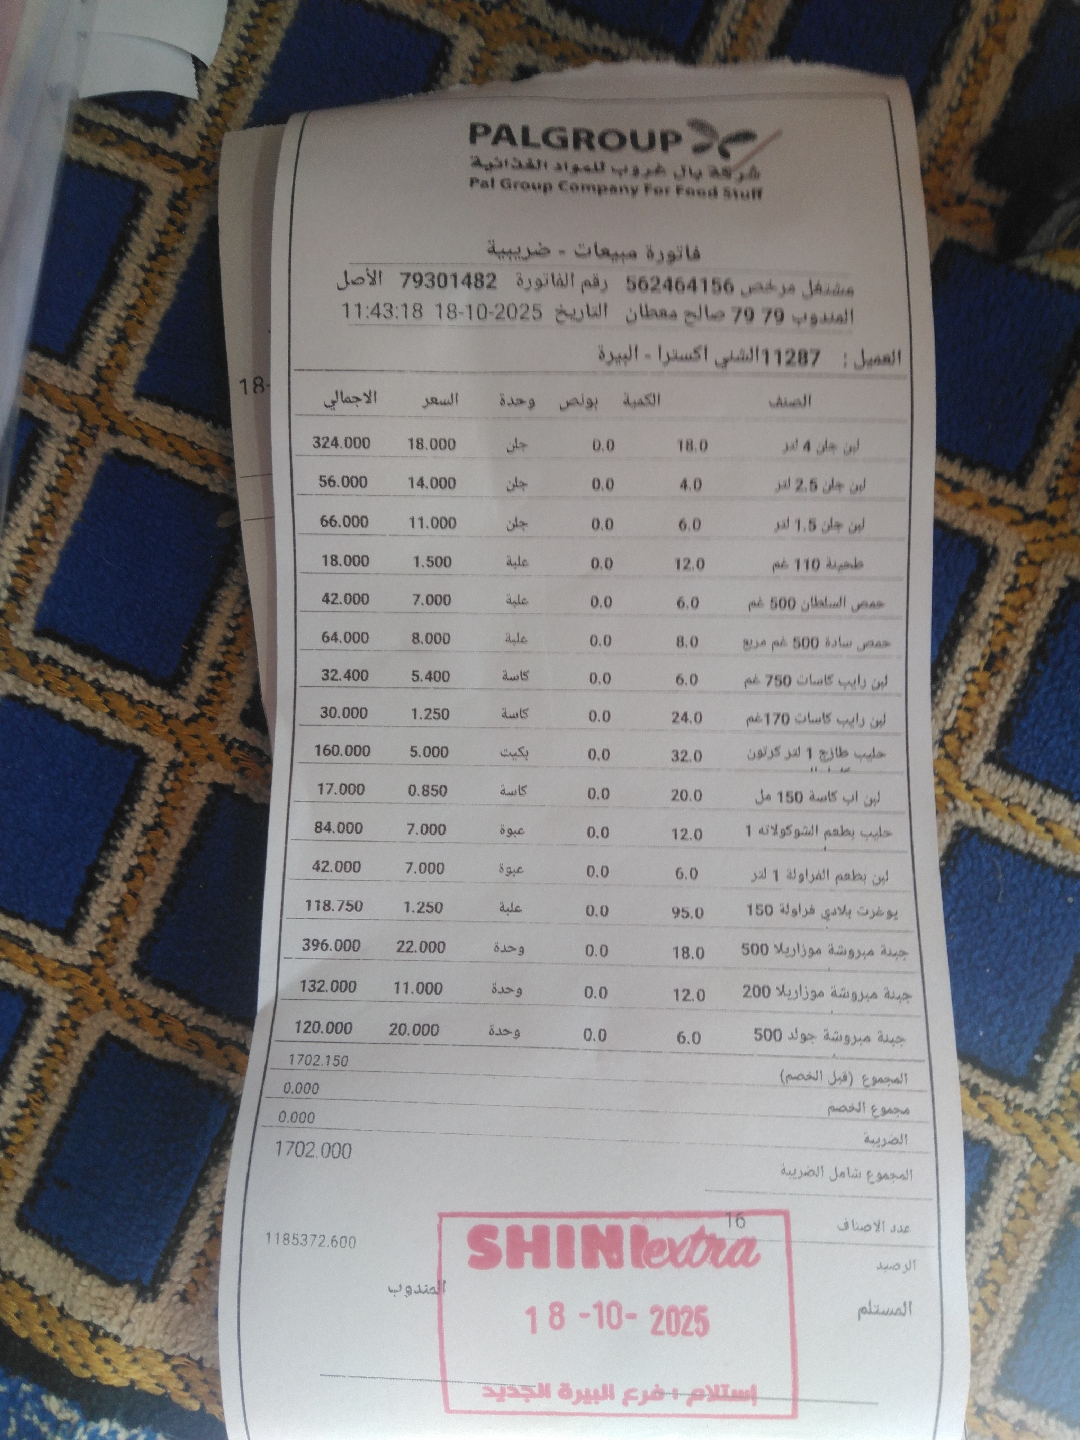 PALGROUP
شركة بال غروب للمواد الغذائية
Pal Group Company For Food Stuff
فاتورة مبيعات - ضريبية
مشتغل مرخص 562464156 رقم الفاتورة 79301482 الأصل
المندوب 79 79 صالح معطان التاريخ 18-10-2025 11:43:18
العميل : 11287الشني اكسترا - البيرة
الصنف الكمية بونص وحدة السعر الاجمالي
لبن جلن 4 لتر 18.0 0.0 جلن 18.000 324.000
18-
لبن جلن 2.5 لتر 4.0 0.0 جلن 14.000 56.000
لبن جلن 1.5 لتر 6.0 0.0 جلن 11.000 66.000
طحينة 110 غم 12.0 0.0 علبة 1.500 18.000
حمص السلطان 500 غم 6.0 0.0 علبة 7.000 42.000
حمص سادة 500 غم مربع 8.0 0.0 علبة 8.000 64.000
لبن رايب كاسات 750 غم 6.0 0.0 كاسة 5.400 32.400
لبن رايب كاسات 170غم 24.0 0.0 كاسة 1.250 30.000
حليب طازج 1 لتر كرتون 32.0 0.0 بكيت 5.000 160.000
لبن اب كاسة 150 مل 20.0 0.0 كاسة 0.850 17.000
حليب بطعم الشوكولاته 1 12.0 0.0 عبوة 7.000 84.000
لبن بطعم الفراولة 1 لتر 6.0 0.0 عبوة 7.000 42.000
يوغرت بلادي فراولة 150 95.0 0.0 علبة 1.250 118.750
جبنة مبروشة موزاريلا 500 18.0 0.0 وحدة 22.000 396.000
جبنة مبروشة موزاريلا 200 12.0 0.0 وحدة 11.000 132.000
جبنة مبروشة جولد 500 6.0 0.0 وحدة 20.000 120.000
المجموع (قبل الخصم) 1702.150
مجموع الخصم 0.000
الضريبة 0.000
المجموع شامل الضريبة 1702.000
عدد الاصناف 16
الرصيد 1185372.600
المستلم المندوب
SHINI extra
18 -10- 2025
إستلام : فرع البيرة الجديد